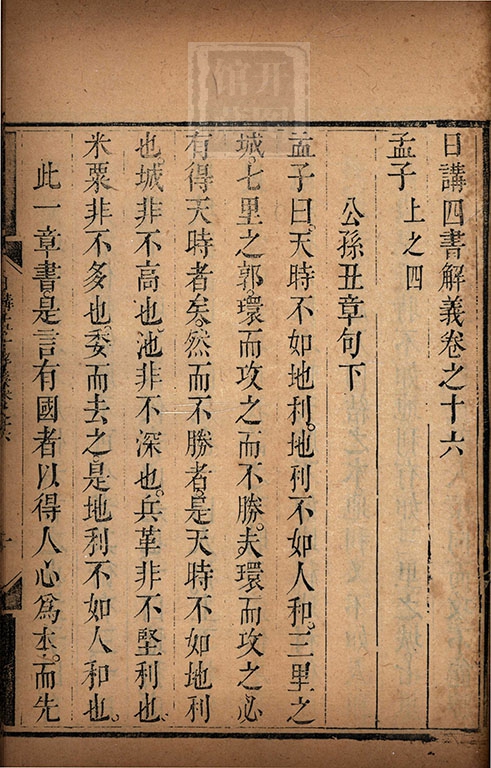 日講四書解義卷之十六
孟子上之四
公孫丑章句下
孟子曰天時不如地利地利不如人和三里之
城七里之郭環而攻之而不勝夫環而攻之必
有得天時者矣然而不勝者是天時不如地利
也城非不高也池非不深也兵革非不堅利也
米粟非不多也委而去之是地利不如人和也
此一章書是言有國者以得人心爲本而先